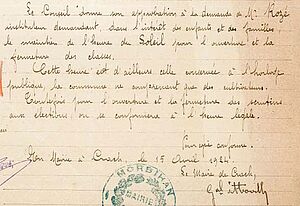 Le Conseil donne son approbation à la demande de Mr Rozé
instituteur demandant, dans l'intérêt des enfants et des familles
le maintien de l'heure du Soleil pour l'ouverture et la
fermeture des classes.
Cette heure est d'ailleurs celle conservée à l'horloge
publique la commune ne comprenant que des cultivateurs.
Toutefois pour l'ouverture et la fermeture des scrutins
aux élections on se conformera à l'heure légale.
Pour copie conforme.
Mairie à Crach, le 15 Avril 1924
Le Maire de Crach,
MORBIHAN
MAIRIE